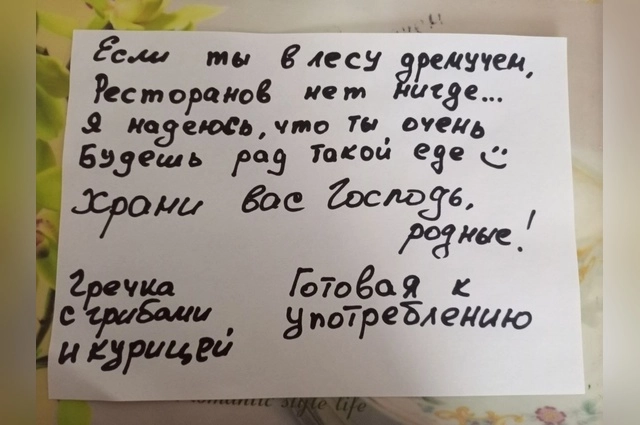 Если ты в лесу дремучем,
Ресторанов нет нигде...
Я надеюсь, что ты очень
Будешь рад такой еде
Храни вас Господь,
родные!
Гречка
с грибами
и курицей
Готовая к
употреблению
romantic style life